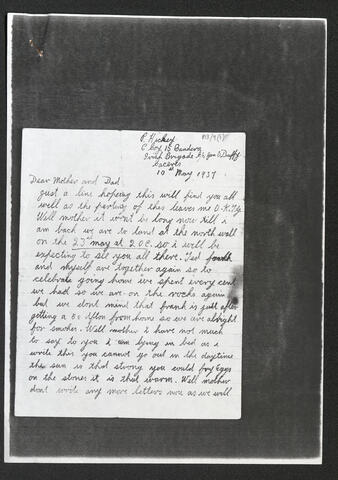 P. Hickey
C Coy 15 Bandera
Irish Brigade Gen O Duffy
Caceres
10th May 1937
Dear Mother and Dad
Just a line hoping this will find you all
well as the parting of this leaves me O.K. T.G.
Well mother it wont be long now till i
am back we are to land at the north wall
on the 23rd may at 2 o.c. so i will be
expecting to see you all there. Ted
and myself are together again so to
celebrate going home we spent every cent
we had so we are on the rocks again
but we dont mind that frank is just after
getting a from home so we are alright
for smokes. Well mother i have not much
to say to you i am lying in bed as i
write this you cannot go out in the daytime
the sun is that strong you could fry eggs
on the stones it is that warm. Well mother
dont write any more letters now as we will